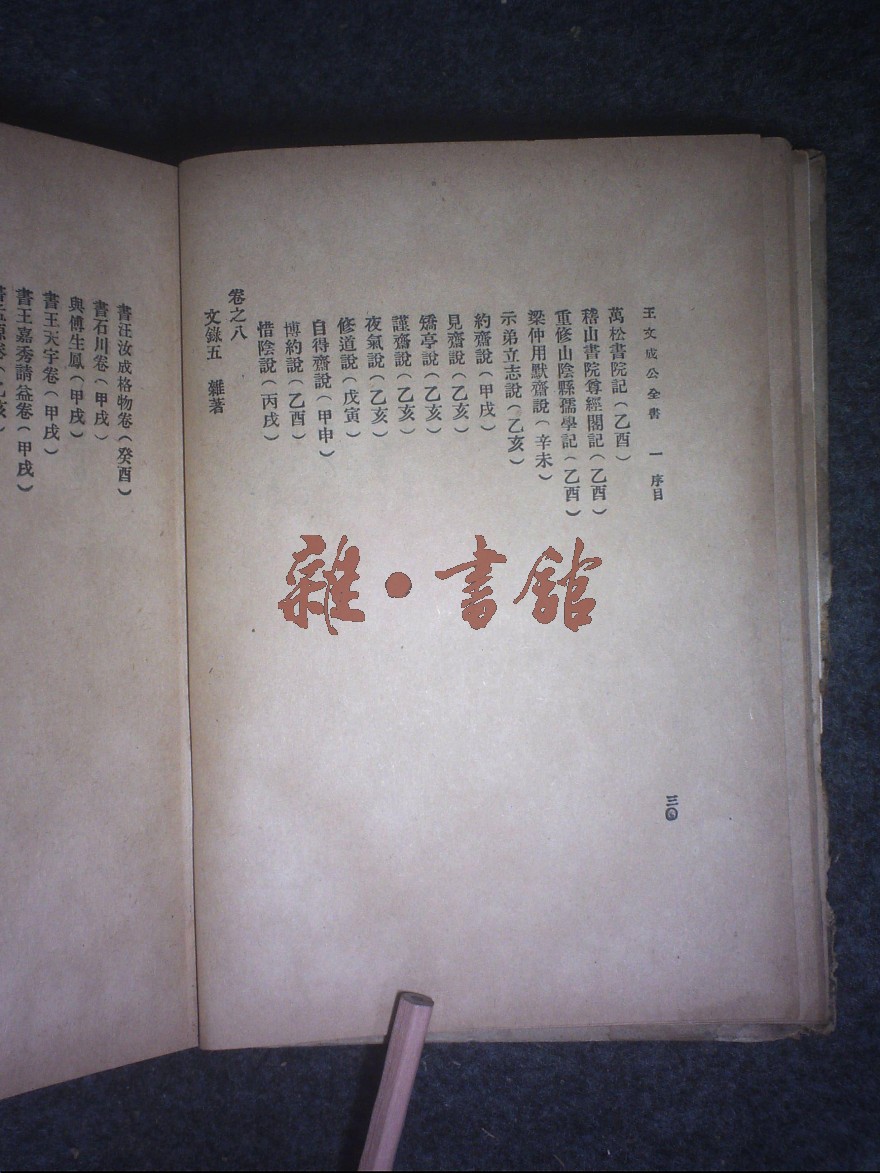 王文成公全書 一 序目
萬松書院記(乙酉)
稽山書院尊經閣記(乙酉)
重修山陰縣儒學記(乙酉)
梁仲用默齋說(辛未)
示弟立志說(乙亥)
約齋說(甲戌)
見齋說(乙亥)
矯亭說(乙亥)
謹齋說(乙亥)
夜氣說(乙亥)
修道說(戊寅)
自得齋說(甲申)
博約說(乙酉)
惜陰說(丙戌)
卷之八
文錄五 雜著
三〇
書汪汝成格物卷(癸酉)
書石川卷(甲戌)
與傅生鳳(甲戌)
書王天宇卷(甲戌)
書王嘉秀請益卷(甲戌)
雜·書館